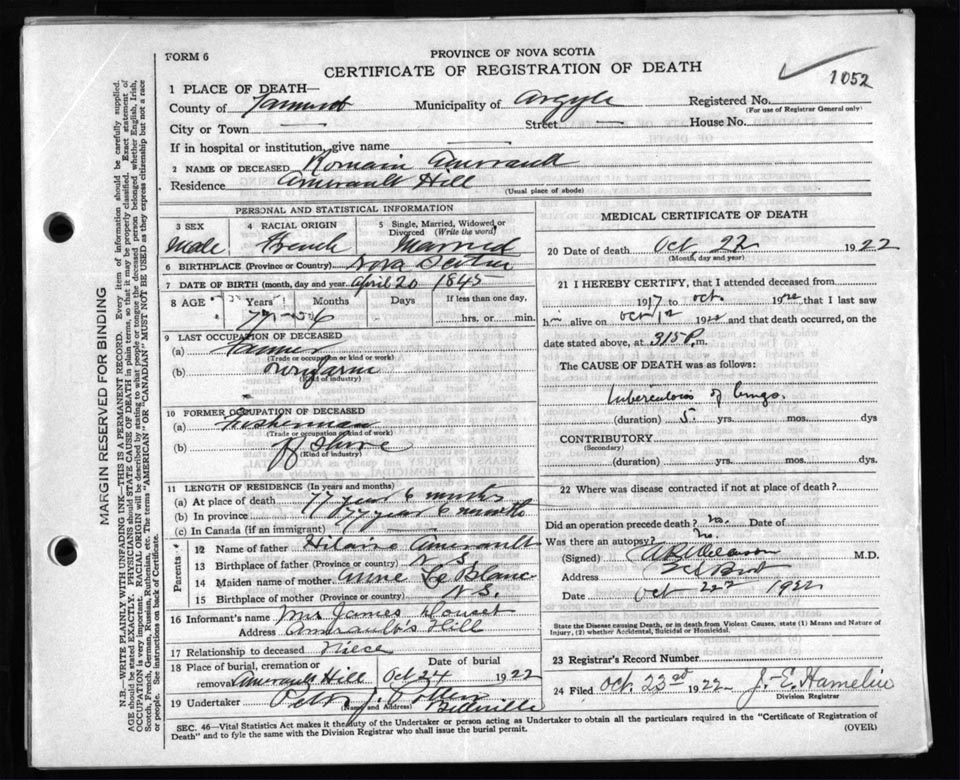 FORM 6
PROVINCE OF NOVA SCOTIA
CERTIFICATE OF REGISTRATION OF DEATH
1052
1 PLACE OF DEATH—
County of Yarmouth Municipality of Argyle Registered No.
(For use of Registrar General only)
City or Town — Street — House No.
If in hospital or institution, give name —
2 NAME OF DECEASED Romain Amirault
Residence Amirault Hill
(Usual place of abode)
PERSONAL AND STATISTICAL INFORMATION
3 SEX 4 RACIAL ORIGIN 5 Single, Married, Widowed or Divorced (Write the word)
Male French Married
6 BIRTHPLACE (Province or Country) Nova Scotia
7 DATE OF BIRTH (month, day and year) April 20 1845
8 AGE Years Months Days If less than one day,
77 - 6 hrs. or min.
9 LAST OCCUPATION OF DECEASED
(a) Farmer
(Trade or occupation or kind or work)
(b) own farm
(Kind of industry)
10 FORMER OCCUPATION OF DECEASED
(a) Fisherman
(Trade or occupation or kind of work)
(b) off shore
(Kind of industry)
11 LENGTH OF RESIDENCE (In years and months)
(a) At place of death 77 year 6 months
(b) In province 77 year 6 months
(c) In Canada (if an immigrant)
Parents
12 Name of father Hilaire Amirault
13 Birthplace of father (Province or country) N S
14 Maiden name of mother Anne Le Blanc
15 Birthplace of mother (Province or country) N S.
16 Informant's name Mrs James Doucet
Address Amirault's Hill
17 Relationship to deceased Niece
18 Place of burial, cremation or removal Date of burial
Amirault Hill Oct 24 1922
19 Undertaker Peter J.
(Name and Address) Belleville
MEDICAL CERTIFICATE OF DEATH
20 Date of death Oct 22 1922
(Month, day and year)
21 I HEREBY CERTIFY, that I attended deceased from
1917 to Oct 1922 that I last saw
h— alive on Oct 12 1922 and that death occurred, on the
date stated above, at 315 P. m.
The CAUSE OF DEATH was as follows:
tuberculosis of lungs.
(duration) 5 yrs. mos. dys
CONTRIBUTORY
(Secondary)
(duration) yrs. mos. dys
22 Where was disease contracted if not at place of death?
Did an operation precede death? no. Date of
Was there an autopsy? no.
(Signed) M.D.
Address
Date Oct 22 1922
State the Disease causing Death, or in death from Violent Causes, state (1) Means and Nature of
Injury, (2) whether Accidental, Suicidal or Homicidal.
23 Registrar's Record Number
24 Filed Oct 23rd 1922 J. E. Hamelin
Division Registrar
SEC. 46—Vital Statistics Act makes it the duty of the Undertaker or person acting as Undertaker to obtain all the particulars required in the "Certificate of Registration of
Death" and to fyle the same with the Division Registrar who shall issue the burial permit.
(OVER)
MARGIN RESERVED FOR BINDING
N.B.—WRITE PLAINLY WITH UNFADING INK—THIS IS A PERMANENT RECORD. Every item of information should be carefully supplied.
AGE should be stated EXACTLY. PHYSICIANS should STATE CAUSE OF DEATH in plain terms, so that it may be properly classified. Exact statement of
OCCUPATION is very important. RACIAL ORIGIN will be described by stating to what people or tongue the deceased person belonged whether English, Irish,
Scotch, French, German, Russian, Ruthenian, etc. The terms "AMERICAN" OR "CANADIAN" MUST NOT BE USED as they express citizenship but not a race
or people. See instructions on back of Certificate.